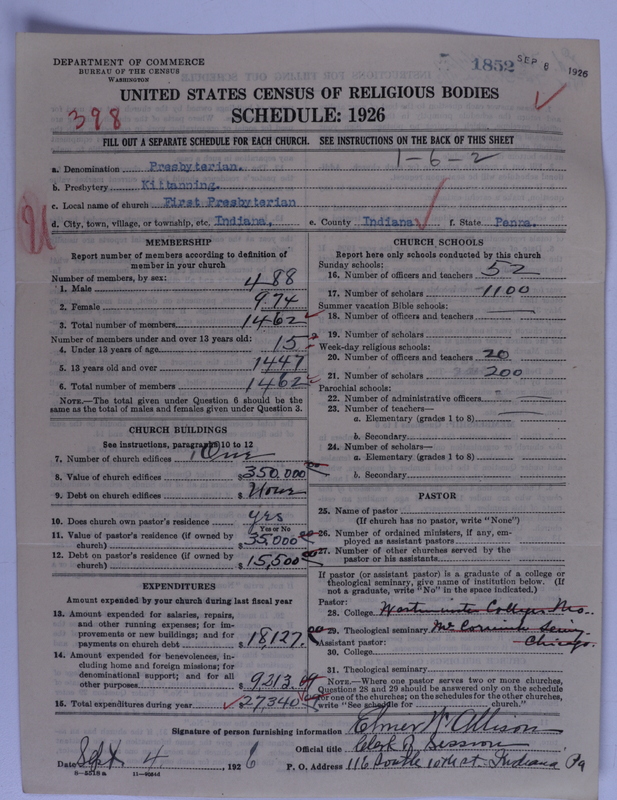 DEPARTMENT OF COMMERCE
BUREAU OF THE CENSUS
WASHINGTON
1852 SEP 6 1926
UNITED STATES CENSUS OF RELIGIOUS BODIES
398
SCHEDULE: 1926
FILL OUT A SEPARATE SCHEDULE FOR EACH CHURCH. SEE INSTRUCTIONS ON THE BACK OF THIS SHEET
1-6-2
a. Denomination Presbyterian.
b. Presbytery Kittanning.
c. Local name of church First Presbyterian
d. City, town, village, or township, etc. Indiana, e. County Indiana f. State Penna.
MEMBERSHIP
Report number of members according to definition of
member in your church
Number of members, by sex:
1. Male 488
2. Female 974
3. Total number of members 1462
Number of members under and over 13 years old:
4. Under 13 years of age 15
5. 13 years old and over 1447
6. Total number of members 1462
NOTE.—The total given under Question 6 should be
same as the total of males and females given under Question 3.
CHURCH BUILDINGS
See instructions, paragraphs 10 to 12
7. Number of church edifices One
8. Value of church edifices $ 350.000
9. Debt on church edifices $ None
10. Does church own pastor's residence yes
Yes or No
11. Value of pastor's residence (if owned by
church) $ 35,000
12. Debt on pastor's residence (if owned by
church) $ 15,500
EXPENDITURES
Amount expended by your church during last fiscal year
13. Amount expended for salaries, repairs,
and other running expenses; for im-
provements or new buildings; and for
payments on church debt $ 18,127.
14. Amount expended for benevolences, in-
cluding home and foreign missions; for
denominational support; and for all
other purposes $ 9,213.
15. Total expenditures during year $ 27340
CHURCH SCHOOLS
Report here only schools conducted by this church
Sunday schools:
16. Number of officers and teachers 52
17. Number of scholars 1100
Summer vacation Bible schools:
18. Number of officers and teachers
19. Number of scholars
Week-day religious schools:
20. Number of officers and teachers 20
21. Number of scholars 200
Parochial schools:
22. Number of administrative officers
23. Number of teachers—
a. Elementary (grades 1 to 8)
b. Secondary
24. Number of scholars—
a. Elementary (grades 1 to 8)
b. Secondary
PASTOR
25. Name of pastor
(If church has no pastor, write "None")
26. Number of ordained ministers, if any, em-
ployed as assistant pastors
27. Number of other churches served by the
pastor or his assistants
If pastor (or assistant pastor) is a graduate of a college or
theological seminary, give name of institution below. (If
not a graduate, write "No" in the space indicated.)
Pastor:
28. College Westminster College Mo.
29. Theological seminary McCormick Semy.
Assistant pastor: Chicago.
30. College
31. Theological seminary
NOTE.—Where one pastor serves two or more churches,
Questions 28 and 29 should be answered only on the schedule
for one of the churches; on the schedules for the other churches,
write "See schedule for church."
Signature of person furnishing information Elmer W Allison
Official title Clerk of Session
Date Sept 4, 1926 P. O. Address 116 South 10th St. Indiana Pa
8-5518a 11-9084d